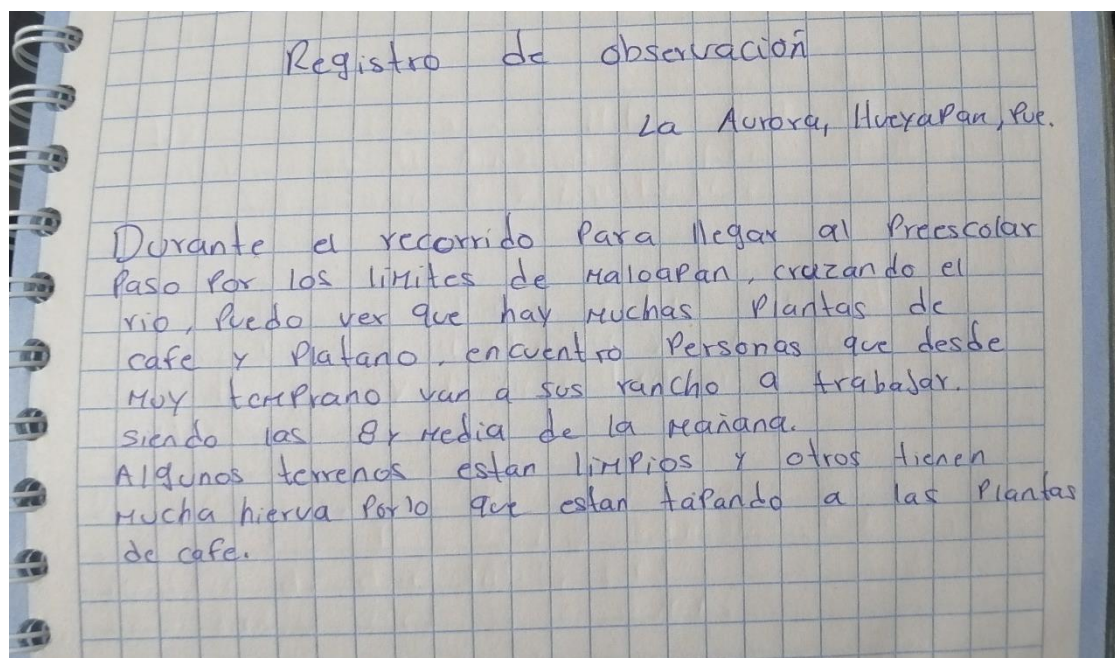 Registro de observación
La Aurora, Hueyapan, Pue.
Durante el recorrido para llegar al Preescolar
Paso por los limites de Maloapan, cruzando el
rio, Puedo ver que hay muchas Plantas de
cafe y Platano, encuentro Personas que desde
muy temprano van a sus rancho a trabajar.
siendo las 8 y media de la mañana.
Algunos terrenos estan limpios y otros tienen
mucha hierva por lo que estan tapando a las Plantas
de cafe.